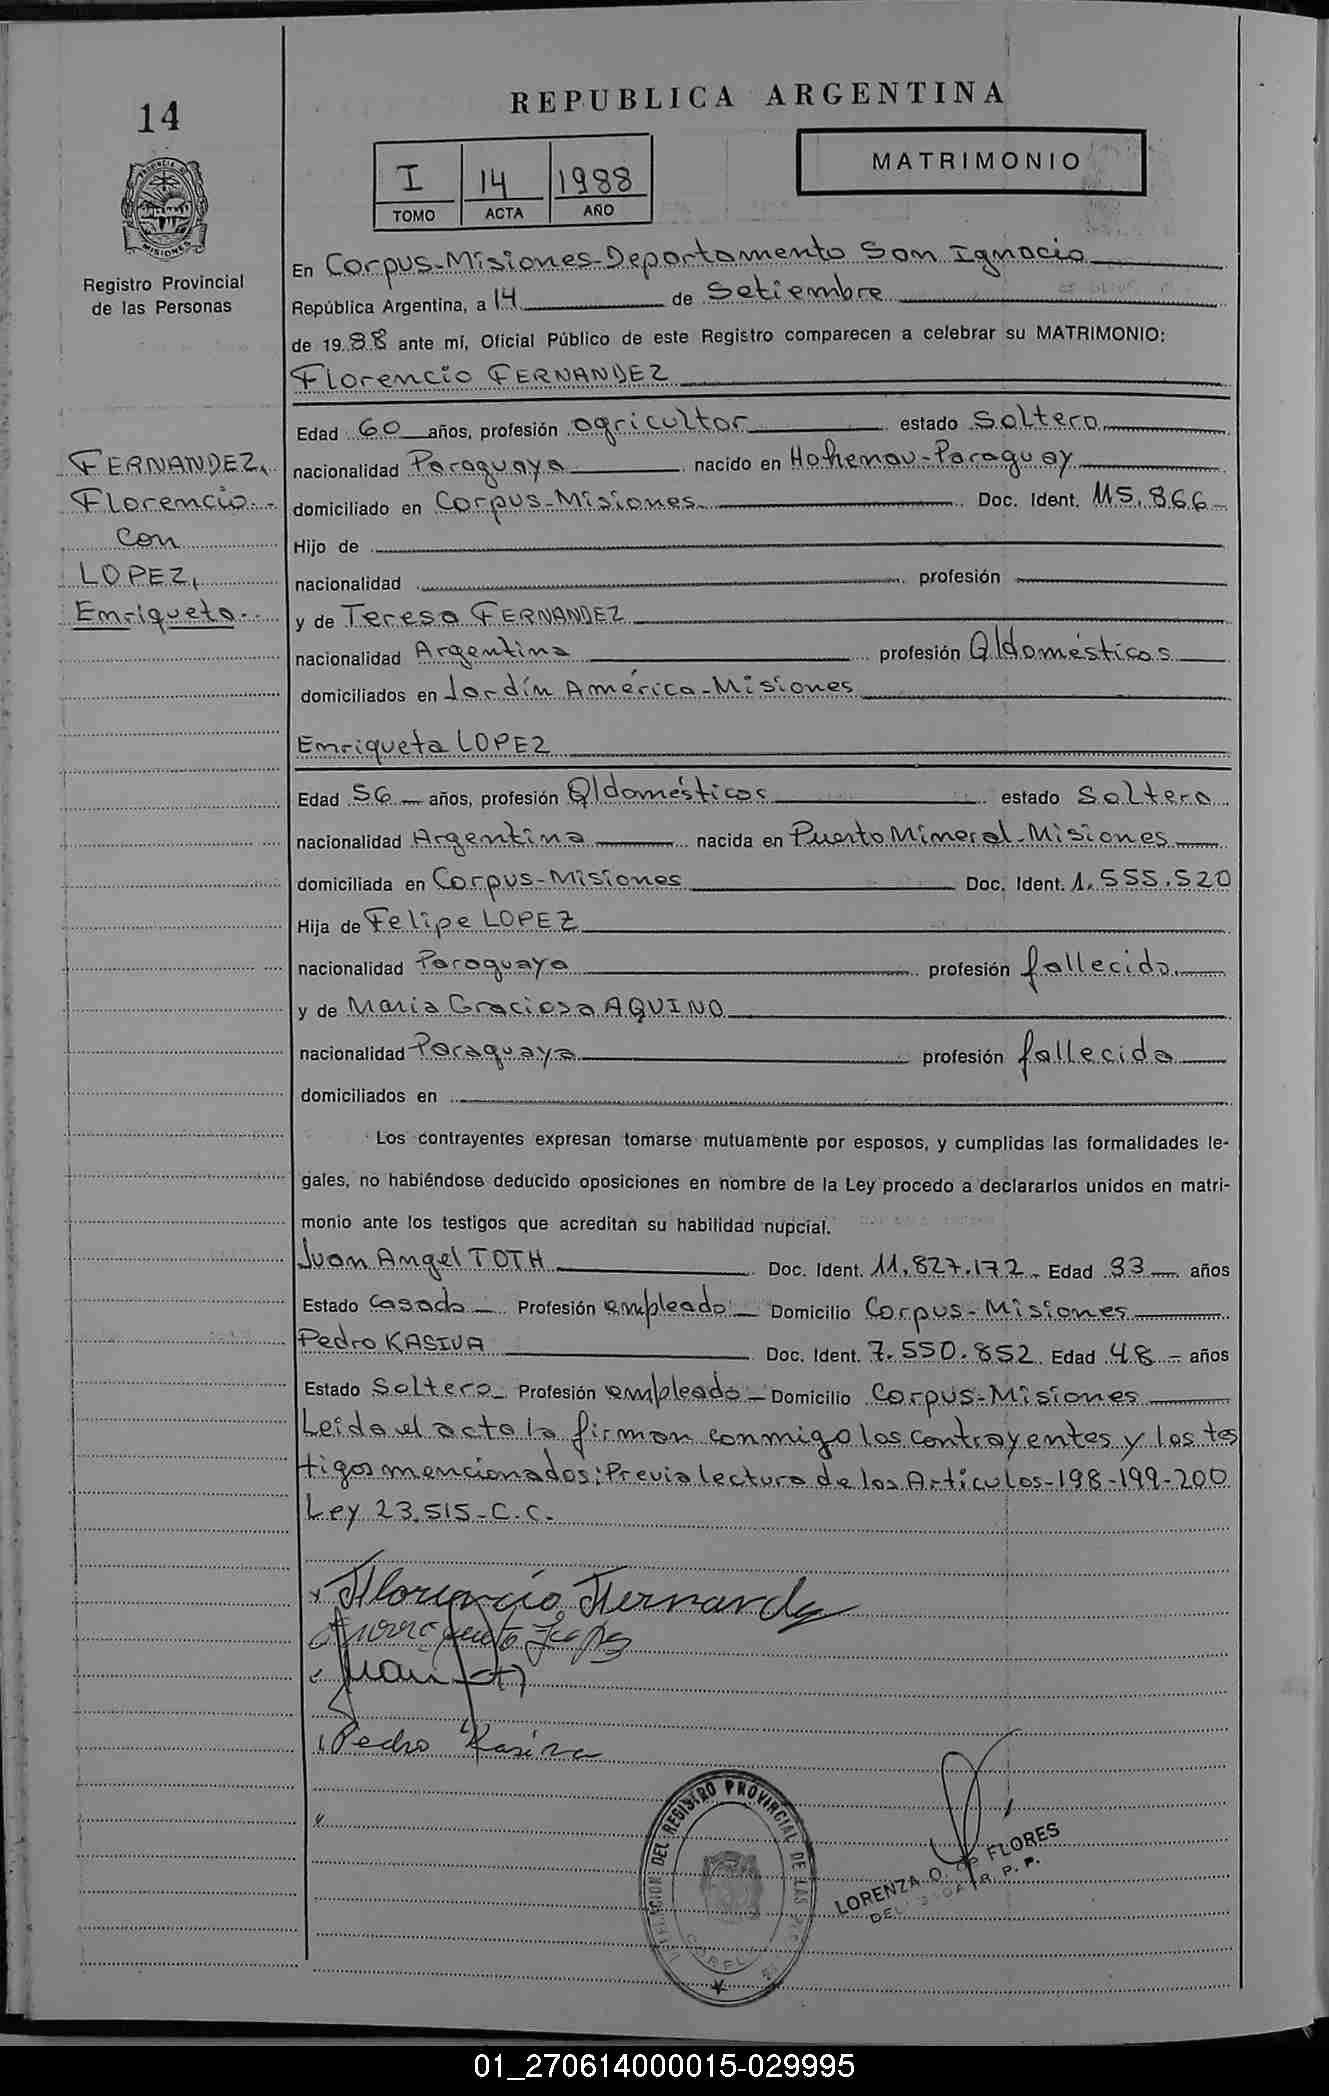 14
REPUBLICA ARGENTINA
MATRIMONIO
I 14 1988
TOMO ACTA AÑO
PROVINCIA DE
MISIONES
Registro Provincial
de las Personas
En Corpus-Misiones-Departamento San Ignacio
República Argentina, a 14 de Setiembre
de 19 88 ante mí, Oficial Público de este Registro comparecen a celebrar su MATRIMONIO:
Florencio FERNANDEZ
FERNANDEZ,
Florencio.-
Con
LOPEZ,
Enriqueta.-
Edad 60 años, profesión agricultor estado Soltero
nacionalidad Paraguaya nacido en Hohenau-Paraguay
domiciliado en Corpus-Misiones Doc. Ident. 115.866-
Hijo de
nacionalidad profesión
y de Teresa FERNANDEZ
nacionalidad Argentina profesión Q/domésticos
domiciliados en Jardín América-Misiones
Enriqueta LOPEZ
Edad 56 años, profesión Q/domésticos estado Soltera
nacionalidad Argentina nacida en Puerto Mineral-Misiones
domiciliada en Corpus-Misiones Doc. Ident. 1.555.520
Hija de Felipe LOPEZ
nacionalidad Paraguaya profesión fallecido
y de Maria Graciosa AQUINO
nacionalidad Paraguaya profesión fallecida
domiciliados en
Los contrayentes expresan tomarse mutuamente por esposos, y cumplidas las formalidades le-
gales, no habiéndose deducido oposiciones en nombre de la Ley procedo a declararlos unidos en matri-
monio ante los testigos que acreditan su habilidad nupcial.
Juan Angel TOTH Doc. Ident. 11.827.172 Edad 33 años
Estado Casado Profesión empleado Domicilio Corpus-Misiones
Pedro KASIVA Doc. Ident. 7.550.852 Edad 48 años
Estado Soltero Profesión empleado Domicilio Corpus-Misiones
Leída el acta la firman conmigo los contrayentes y los tes
tigos mencionados: Previa lectura de los Artículos-198-199-200
Ley 23.515-C.C.
Florencio Fernandez
Enriqueta Lopez
Juan
Pedro Kasiva
DEL REGISTRO PROVINCIAL DE LAS
LORENZA O. DE FLORES
R. P. P.
01_270614000015-029995